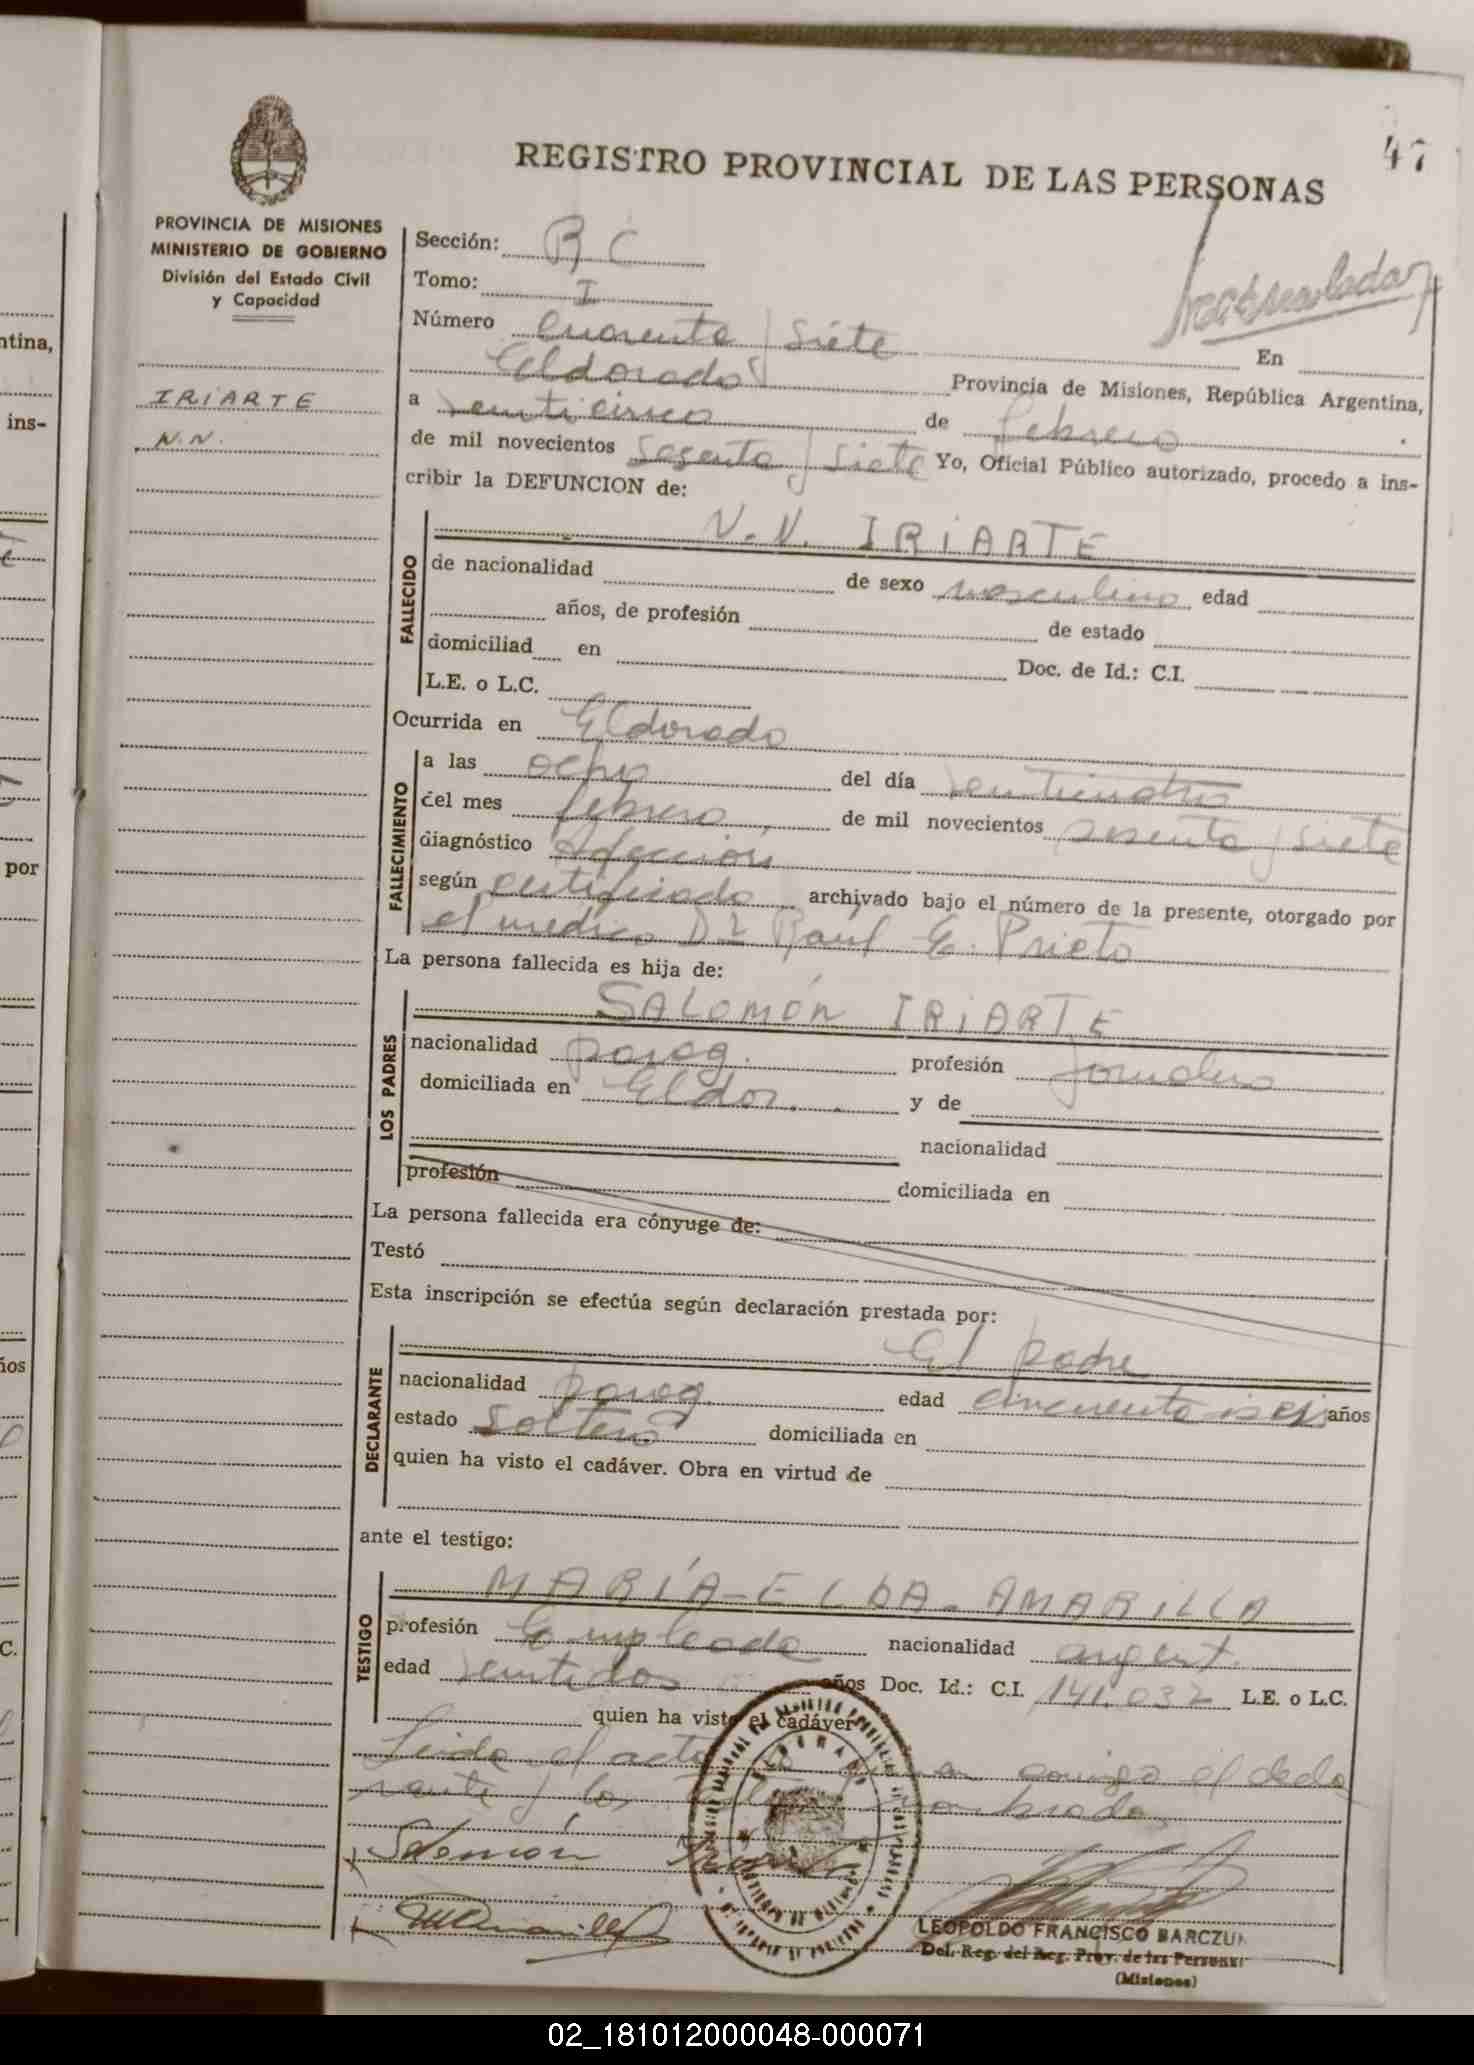 47
REGISTRO PROVINCIAL DE LAS PERSONAS
PROVINCIA DE MISIONES
MINISTERIO DE GOBIERNO
División del Estado Civil
y Capacidad
IRIARTE
N.N.
Sección: B C
Tomo: I
Número Cuarenta y siete En
Eldorado Provincia de Misiones, República Argentina,
a veinticinco de febrero
de mil novecientos sesenta y siete Yo, Oficial Público autorizado, procedo a ins-
cribir la DEFUNCION de:
N.N. IRIARTE
FALLECIDO
de nacionalidad de sexo masculino edad
años, de profesión de estado
domiciliad en Doc. de Id.: C.I.
L.E. o L.C.
Ocurrida en Eldorado
FALLECIMIENTO
a las ocho del día
del mes febrero, de mil novecientos sesenta y siete
diagnóstico
según certificado archivado bajo el número de la presente, otorgado por
el medico Dr Raúl E. Prieto
La persona fallecida es hija de:
LOS PADRES
SALOMÓN IRIARTE
nacionalidad parag. profesión jornalero
domiciliada en Eldor. y de
nacionalidad
profesión domiciliada en
La persona fallecida era cónyuge de:
Testó
Esta inscripción se efectúa según declaración prestada por:
DECLARANTE
El padre
nacionalidad parag. edad años
estado soltero domiciliada en
quien ha visto el cadáver. Obra en virtud de
ante el testigo:
TESTIGO
MARÍA-ELDA-AMARILLA
profesión Empleada nacionalidad argent.
edad veintidos años Doc. Id.: C.I. 141.032 L.E. o L.C.
quien ha visto el cadáver
Leida el acta conmigo el decla
rante y los
Salomón Iriarte
LEOPOLDO FRANCISCO BARCZUK
Del. Reg. del Reg. Prov. de las Personas
(Misiones)
ntina,
ins-
por
ños
C.
02_181012000048-000071